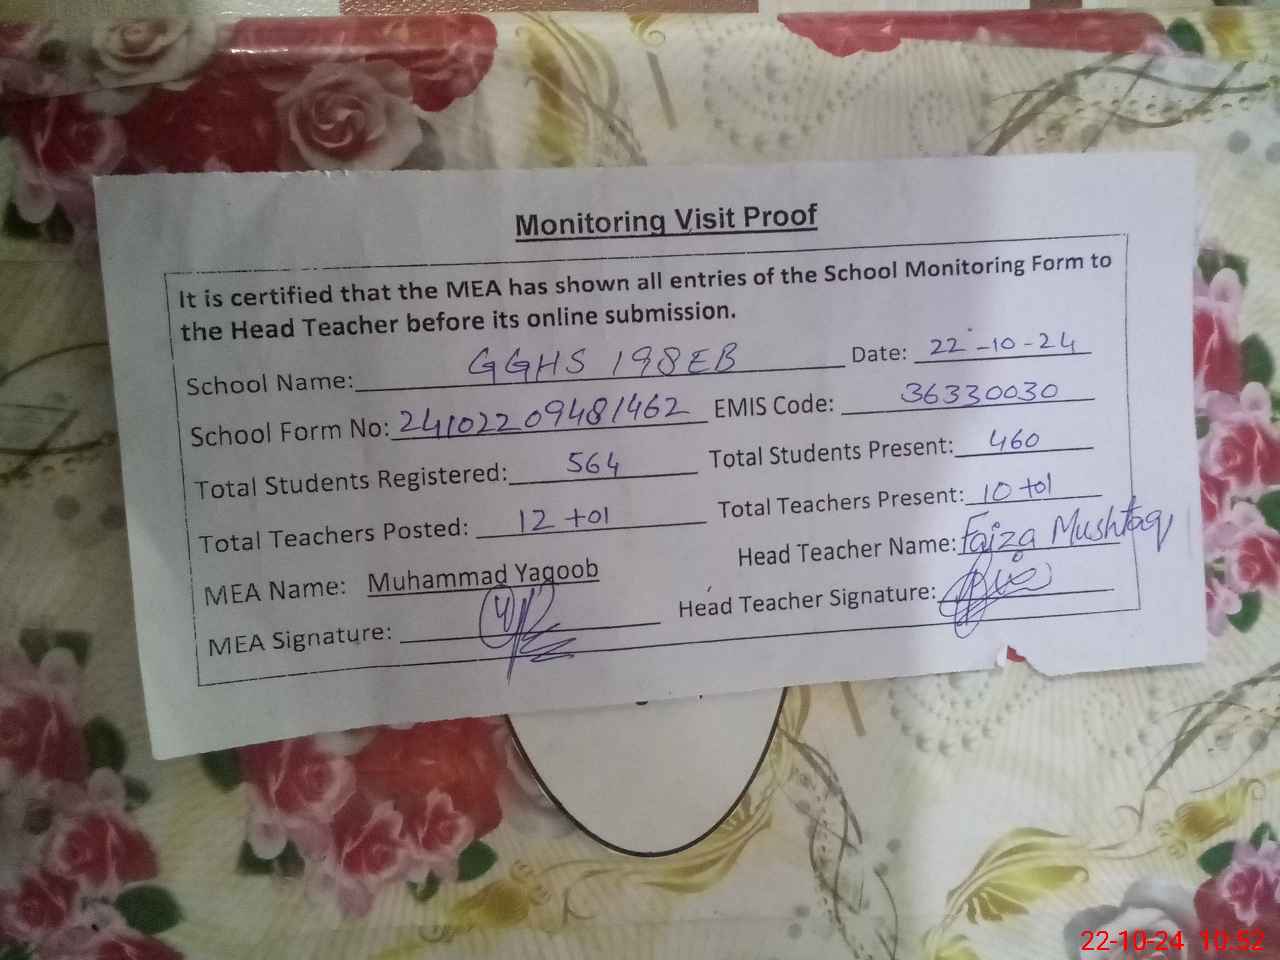 Monitoring Visit Proof
It is certified that the MEA has shown all entries of the School Monitoring Form to
the Head Teacher before its online submission.
School Name: GGHS 198EB Date: 22-10-24
School Form No: 24102209481462 EMIS Code: 36330030
Total Students Registered: 564 Total Students Present: 460
Total Teachers Posted: 12 +01 Total Teachers Present: 10 +01
MEA Name: Muhammad Yaqoob Head Teacher Name: Faiza Mushtaq
MEA Signature: Head Teacher Signature:
22-10-24 10:52